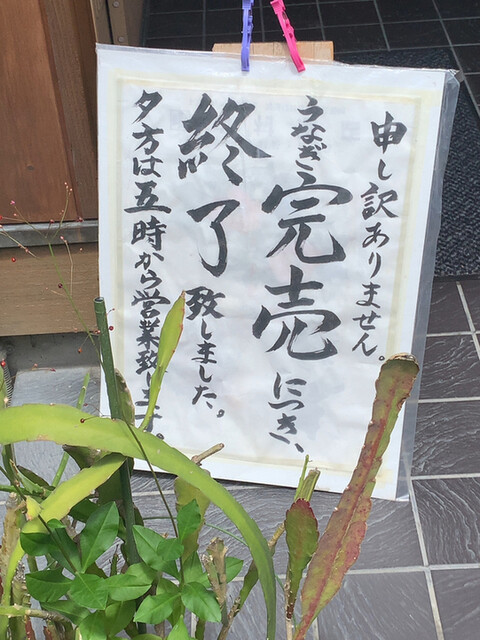 申し訳ありません。
うなぎ完売につき、
終了致しました。
夕方は五時から営業致します。